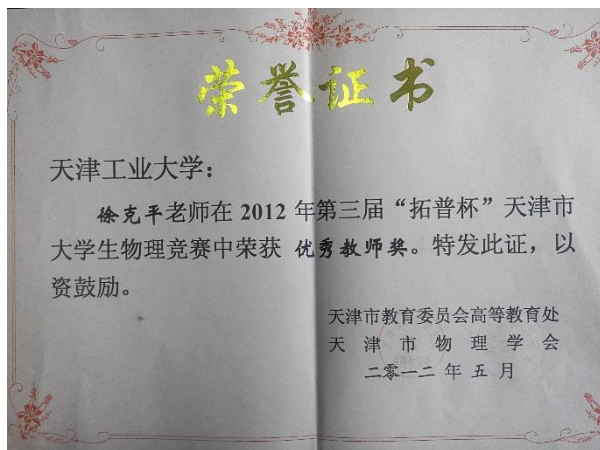 荣誉证书
天津工业大学：
徐克平老师在2012年第三届“拓普杯”天津市
大学生物理竞赛中荣获 优秀教师奖。特发此证，以
资鼓励。
天津市教育委员会高等教育处
天津市物理学会
二零一二年五月